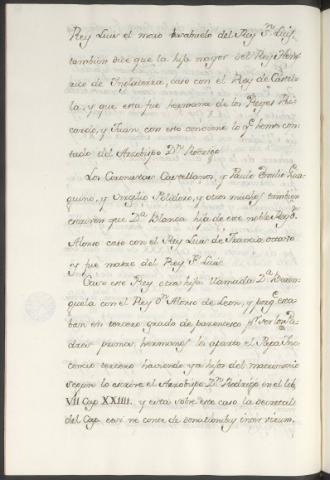 Rey Luis el nuvo bisabuelo del Rey Sn. Luis,
tambien dice que la hija mayor del Rey Hen-
rico de Inglaterra, caso con el Rey de Casti-
lla, y que esta fue hermana de los Reyes Ri-
cardo, y Juan, con esto concierne lo qe. hemos con-
tado del Arzobispo Dn. Rodrigo
Los Coronistas Castellanos, y Paulo Emilio, Ga-
guino, y Virgilio Polidoro, y otros muchos tambien
escriven que Da. Blanca hija de este noble Rey Dn.
Alonso caso con el Rey Luis de Francia octavo
y fue madre del Rey Sn. Luis.
Caso este Rey otra hija llamada Da. Beren-
guela con el Rey Dn. Alonso de Leon, y porqe. esta-
ban en tercero grado de parentesco pr. ser los Pa-
dres primos hermanos los aparto el Papa Ino-
cencio tercero haviendo ya hijos del matrimonio
segun lo escrive el Arzobispo Dn. Rodrigo en el lib.
VII Cap. XXIIII. y esta sobre este caso la decretal
del Cap. et si ne conce de donationib. inter virum,